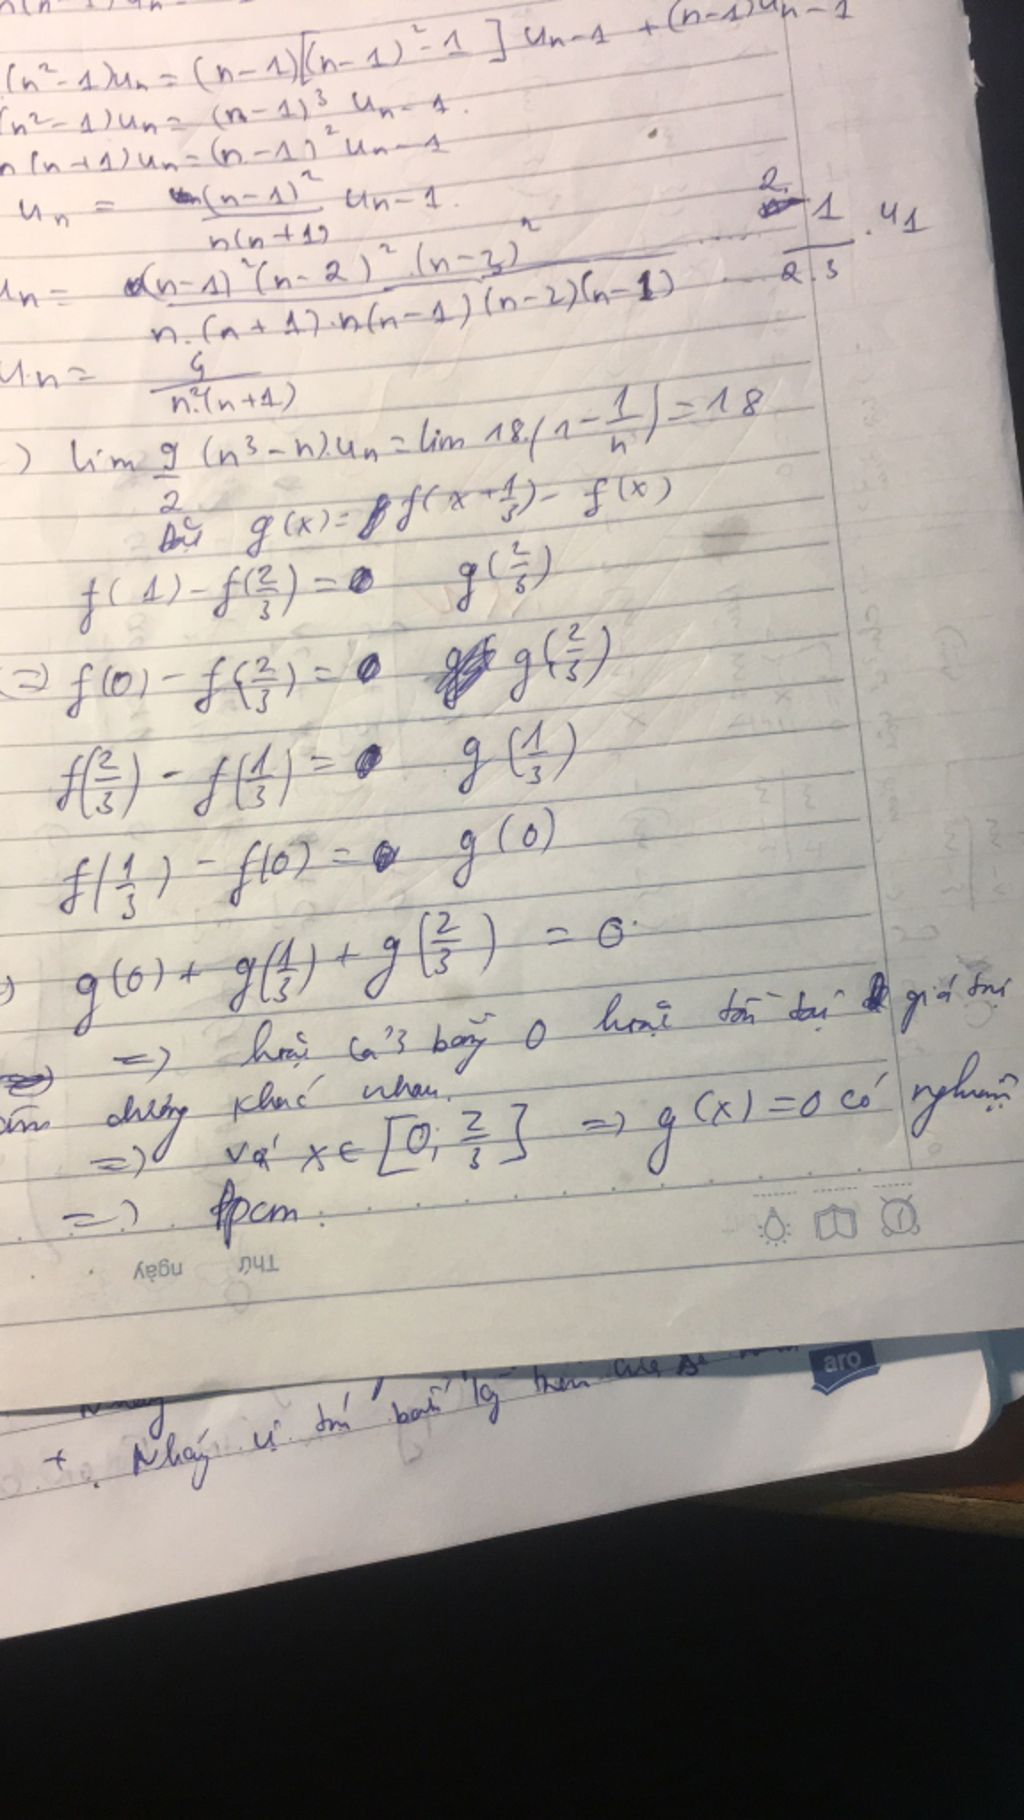 (n²-1)uₙ = (n-1)[(n-1)²-1] uₙ₋₁ + (n-1)uₙ₋₁
(n²-1)uₙ = (n-1)³ uₙ₋₁.
n(n+1)uₙ = (n-1)² uₙ₋₁
uₙ = (n-1)²/n(n+1) uₙ₋₁.
uₙ = (n-1)²(n-2)².(n-3)² ..... 2.1/n.(n+1).n(n-1)(n-2)(n-1) ... 2.3 . u₁
uₙ = 4/n²(n+1)
) lim 9/2 (n³-n).uₙ = lim 18.(1-1/n) = 18
g(x) = f(x+1/3) - f(x)
f(1) - f(2/3) = g(2/3)
(=) f(0) - f(2/3) = g(2/3)
f(2/3) - f(1/3) = g(1/3)
f(1/3) - f(0) = g(0)
) g(0) + g(1/3) + g(2/3) = 0.
=) hoặc cả 3 bằng 0 hoặc tồn tại giá trị
âm dương khác nhau.
=) và x ∈ [0; 2/3] => g(x) = 0 có nghiệm
=) đpcm.
Thứ ngày
aro
+ . Nhảy vị trí bất kỳ